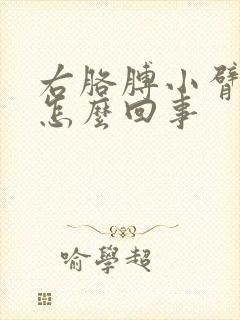 右胳膊小臂
怎麼回事
喻學超